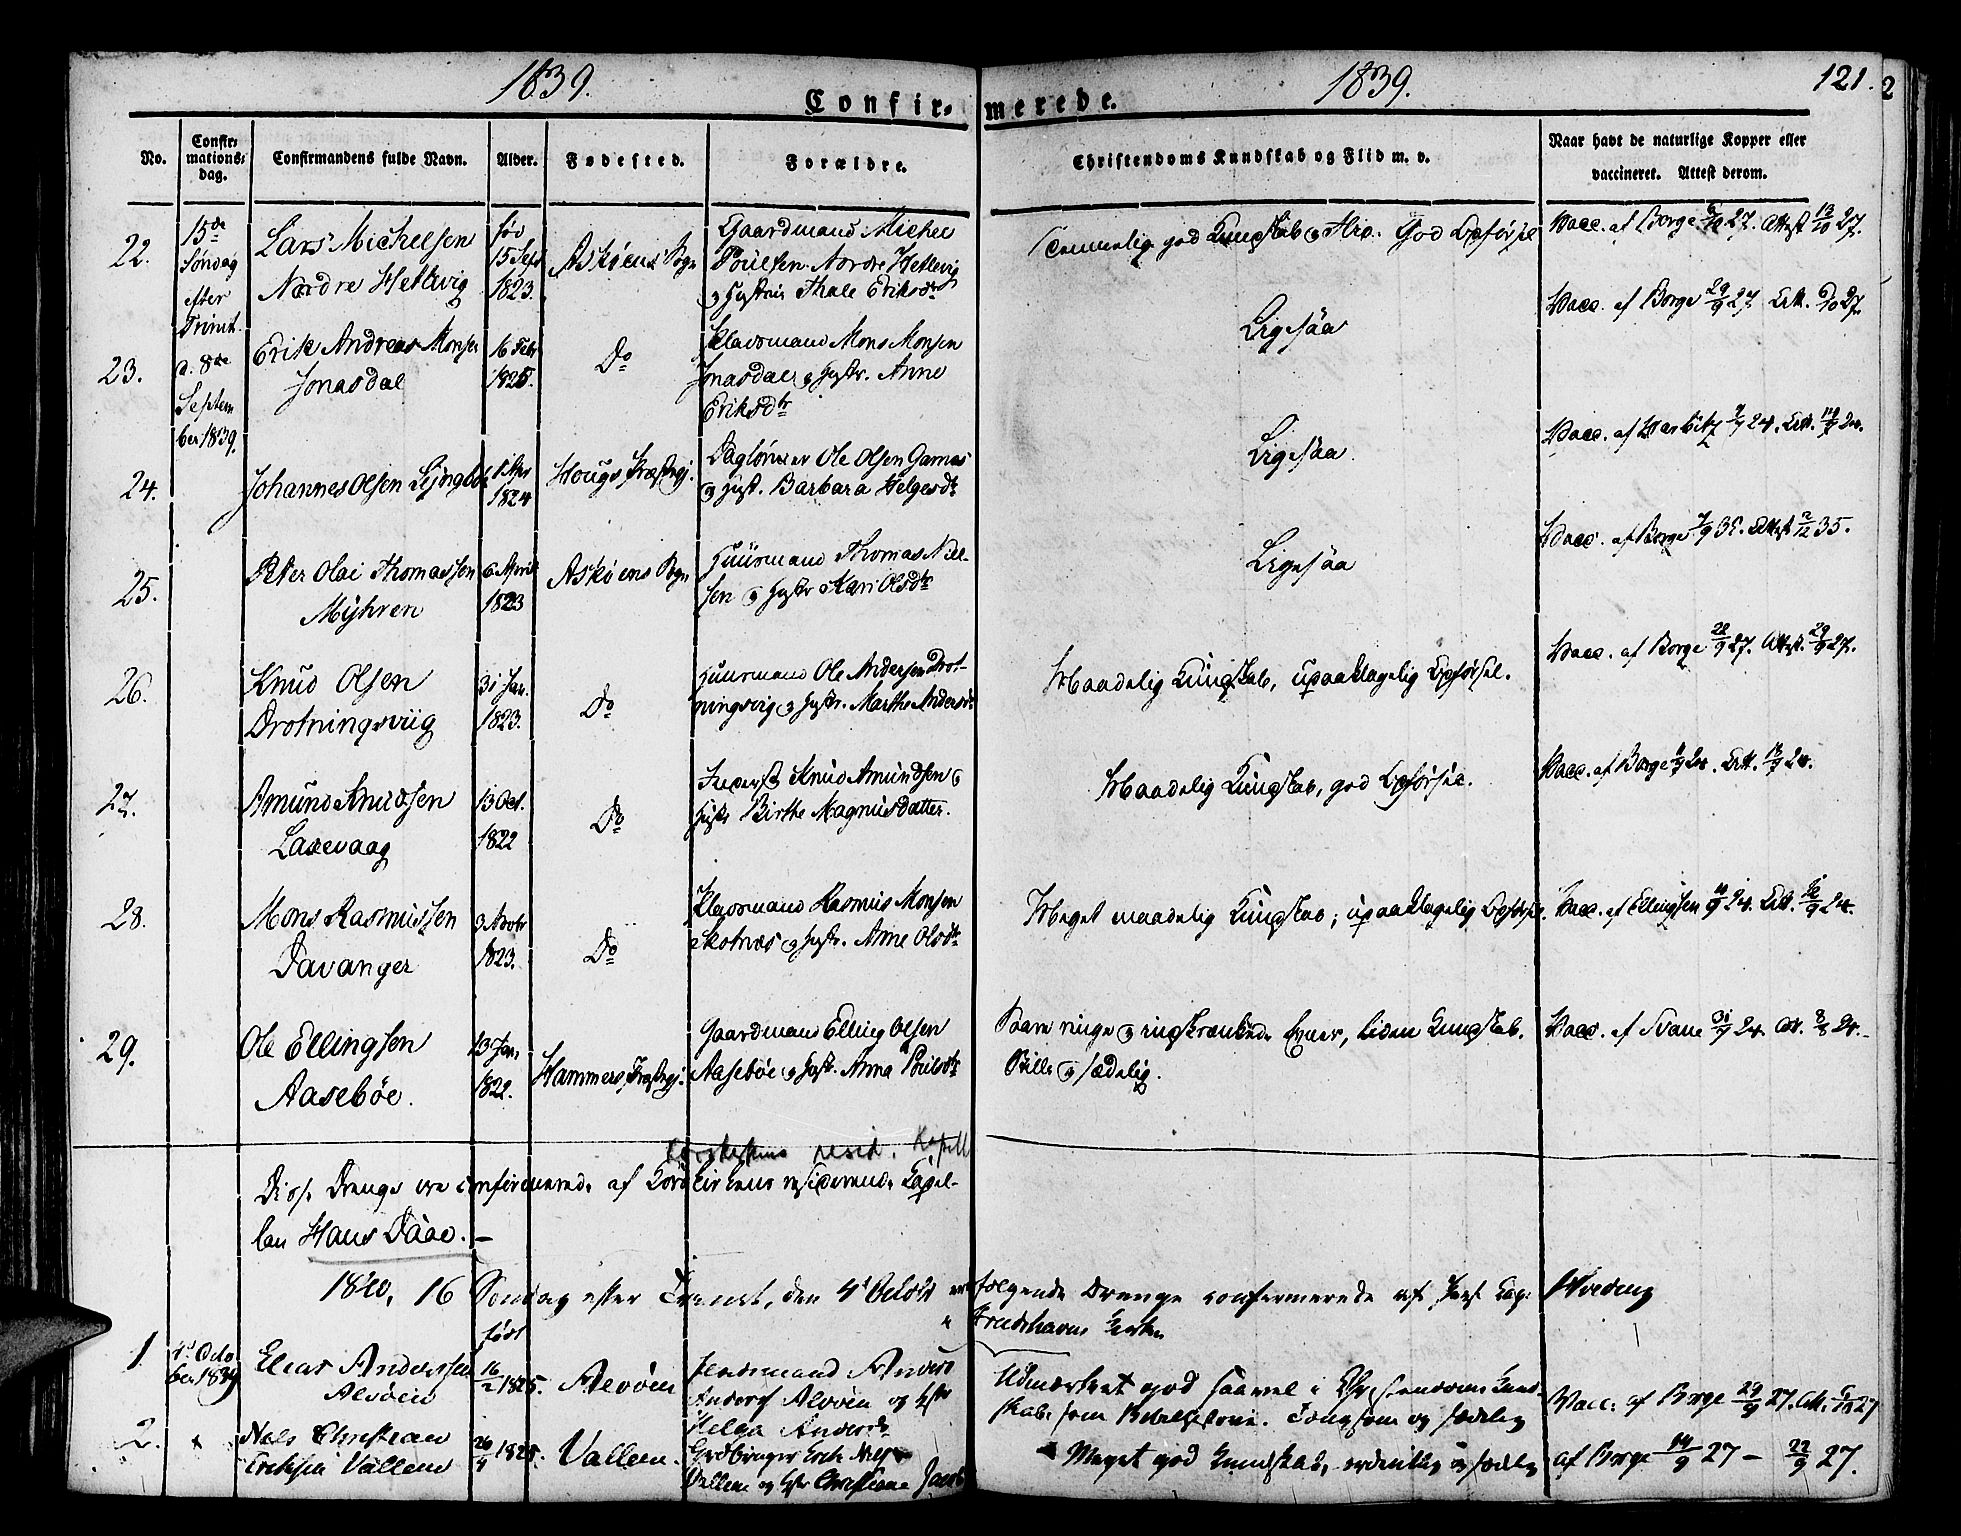 1839.
1839.
121.
2
Confir-
merede.
No.
Confir-
mations-
dag.
Confirmandens fulde Navn.
Alder.
Fødested.
Forældre.
Christendoms Kundskab og Flid m. v.
Naar havt de naturlige Kopper eller
vaccineret. Attest derom.
15de
Søndag
efter
Trinit.
d. 8de
Septem
ber 1839.
22.
Lars Michelsen
Nordre Hetlevig
fød
15 Sept
1823.
Askøens Sogn
Gaardmand Michel
Poulsen Nordre Hetlevig
og Hustrue Thale Eriksdtr
Temmelig god Kundskab og Flid. God Opførsel
Vacc. af Borge 27. Attest 13/10 27.
23.
Erik Andreas Monsen
Jonasdal
16 Febr
1825.
Do
Pladsmand Mons Monsen
Jonasdal og Hustr. Anne
Eriksdtr
Ligesaa
Vacc. af Borge 29/9 27. Att. 27.
24.
Johannes Olsen
1824
Hougs Præstegj.
Daglønner Ole Olsen Garnes
og Hust. Barbara Helgesdtr
Ligesaa
Vacc. af 24. Att. 24.
25.
Peter Olai Thomassen
Myhren
6 April
1823
Askøens Sogn
Huusmand Thomas Niel-
sen og Hustr Kari Olsdtr
Ligesaa
Vacc. af Borge 7/9 35. Attest 2/12 35.
26.
Knud Olsen
Drotningsviig
31 Jan.
1823.
Do
Huusmand Ole Andersen Drot-
ningsvig og Hustr. Marthe Andersdtr
Maadelig Kundskab, upaaklagelig Opførsel.
Vacc. af Borge 28/9 27. Attest. 29/9 27.
27.
Amund Knudsen
Laxevaag
13 Oct.
1822
Do
Knud Amundsen og
Hustr Birthe Magnusdatter.
Maadelig Kundskab, god Opførsel.
Vacc. af Borge 24. Att. 24.
28.
Mons Rasmussen
Davanger
3 Novbr
1823.
Do
Pladsmand Rasmus Monsen
Skotnes og Hustr. Anne Olsdtr
Meget maadelig Kundskab; upaaklagelig Opførsel.
Vacc. af Ellingsen 24. Att. 24.
29.
Ole Ellingsen
Aasebøe.
13 Jan.
1822.
Hammers Præstegj.
Gaardmand Elling Olsen
Aasebøe og Hust. Anna Poulsdtr
Saare ringe og indskrænkede Evner, liden Kundskab.
Stille og sædelig.
Vacc. af Svane 24. Att. 24.
Korskirkens resid. Kapell
Disse Drenge ere confirmerede af Korskirkens residerende Capel-
lan Hans Daae.
16 Søndag efter Trinit, den 4d Octobr ere følgende Drenge confirmerede af Pers. Cap. Hveding
i Fredrikhavns Kirke
1.
Octo
ber 1839
Elias Andersen
Alvøen
født
16/2 1825.
Alvøen
Anders
Anders Alvøen og Hstr
Helga Andersdr
Udmærket god saavel i Christendoms Kund-
skab som Bibelhistorie. og sædelig
Vacc: af Borge 29/9 27. Att. 27
2.
Nels Christian
Eriksen Vallem
26/4 1825.
Vallem.
Erik Nels
Vallem og Hstr Christiane Jacob
Meget god Kundskab, ordentlig og sædelig
af Borge 14/9 27 — 22/9 27.